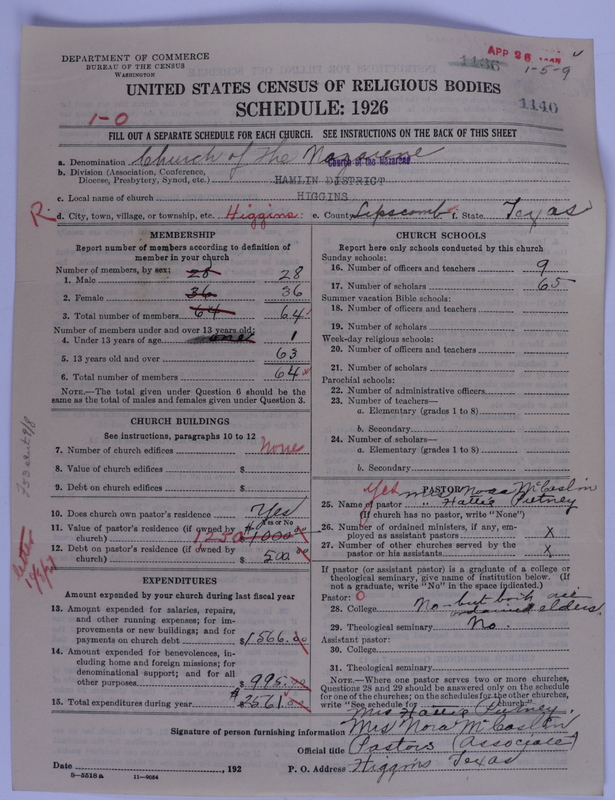 DEPARTMENT OF COMMERCE
BUREAU OF THE CENSUS
WASHINGTON
1136
APR 26
1-5-9
UNITED STATES CENSUS OF RELIGIOUS BODIES
SCHEDULE: 1926
1140
1-0
FILL OUT A SEPARATE SCHEDULE FOR EACH CHURCH. SEE INSTRUCTIONS ON THE BACK OF THIS SHEET
a. Denomination Church of the Nazarene Church of the Nazarene
b. Division (Association, Conference, Diocese, Presbytery, Synod, etc.) HAMLIN DISTRICT
c. Local name of church HIGGINS
R. d. City, town, village, or township, etc. Higgins e. County Lipscomb f. State Texas
MEMBERSHIP
Report number of members according to definition of member in your church
Number of members, by sex:
1. Male 28 28
2. Female 36 36
3. Total number of members 64 64
Number of members under and over 13 years old:
4. Under 13 years of age one 1
5. 13 years old and over 63
6. Total number of members 64
NOTE.—The total given under Question 6 should be the same as the total of males and females given under Question 3.
CHURCH BUILDINGS
See instructions, paragraphs 10 to 12
7. Number of church edifices none
8. Value of church edifices $
9. Debt on church edifices $
10. Does church own pastor's residence Yes
Yes or No
11. Value of pastor's residence (if owned by church) 1250 $1000.00
12. Debt on pastor's residence (if owned by church) $500.00
letter
EXPENDITURES
Amount expended by your church during last fiscal year
13. Amount expended for salaries, repairs, and other running expenses; for improvements or new buildings; and for payments on church debt $1,566.00
14. Amount expended for benevolences, including home and foreign missions; for denominational support; and for all other purposes $995.00
15. Total expenditures during year $2561.00
CHURCH SCHOOLS
Report here only schools conducted by this church
Sunday schools:
16. Number of officers and teachers 9
17. Number of scholars 65
Summer vacation Bible schools:
18. Number of officers and teachers
19. Number of scholars
Week-day religious schools:
20. Number of officers and teachers
21. Number of scholars
Parochial schools:
22. Number of administrative officers
23. Number of teachers—
a. Elementary (grades 1 to 8)
b. Secondary
24. Number of scholars—
a. Elementary (grades 1 to 8)
b. Secondary
PASTOR
Yes Mrs Nora McCaslin
25. Name of pastor " Hattie Putney
(If church has no pastor, write "None")
26. Number of ordained ministers, if any, employed as assistant pastors X
27. Number of other churches served by the pastor or his assistants X
If pastor (or assistant pastor) is a graduate of a college or theological seminary, give name of institution below. (If not a graduate, write "No" in the space indicated.)
Pastor: 0
28. College No - but both are ordained elders.
29. Theological seminary No.
Assistant pastor:
30. College
31. Theological seminary
NOTE.—Where one pastor serves two or more churches, Questions 28 and 29 should be answered only on the schedule for one of the churches; on the schedules for the other churches, write "See schedule for church."
Mrs Hattie Putney.
Signature of person furnishing information Mrs Nora McCaslin
Official title Pastors (Associate)
Date , 192 P. O. Address Higgins Texas
8—5518a 11—9034